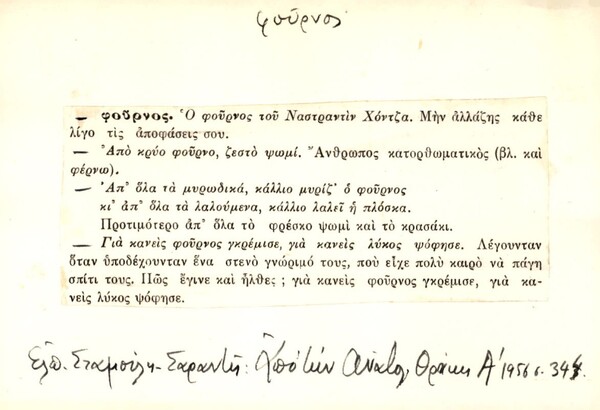 φοῦρνος
— φοῦρνος. Ὁ φοῦρνος τοῦ Ναστραντὶν Χόντζα. Μὴν ἀλλάζης κάθε
λίγο τὶς ἀποφάσεις σου.
— Ἀπὸ κρύο φοῦρνο, ζεστὸ ψωμί. Ἄνθρωπος κατορθωματικὸς (βλ. καὶ
φέρνω).
— Ἀπ’ ὅλα τὰ μυρωδικά, κάλλιο μυρίζ’ ὁ φοῦρνος
κι’ ἀπ’ ὅλα τὰ λαλούμενα, κάλλιο λαλεῖ ἡ πλόσκα.
Προτιμότερο ἀπ’ ὅλα τὸ φρέσκο ψωμὶ καὶ τὸ κρασάκι.
— Γιὰ κανεὶς φοῦρνος γκρέμισε, γιὰ κανεὶς λύκος ψόφησε. Λέγουνταν
ὅταν ὑποδέχουνταν ἕνα στενὸ γνώριμό τους, ποὺ εἶχε πολὺ καιρὸ νὰ πάγη
σπίτι τους. Πῶς ἔγινε καὶ ἦλθες ; γιὰ κανεὶς φοῦρνος γκρέμισε, γιὰ κα-
νεὶς λύκος ψόφησε.
Ἐλπ. Σταμούλη-Σαραντῆ: Ἀπὸ τὴν Ἀνατολ. Θράκη Α’ 1956 σ.